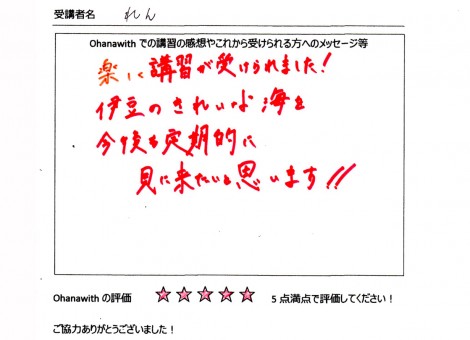 受講者名 れん
Ohanawith での講習の感想やこれから受けられる方へのメッセージ等
楽しく講習が受けられました!
伊豆のきれいな海を
今後も定期的に
見に来たいと思います!!
Ohanawith の評価 ☆☆☆☆☆ 5 点満点で評価してください!
ご協力ありがとうございました!